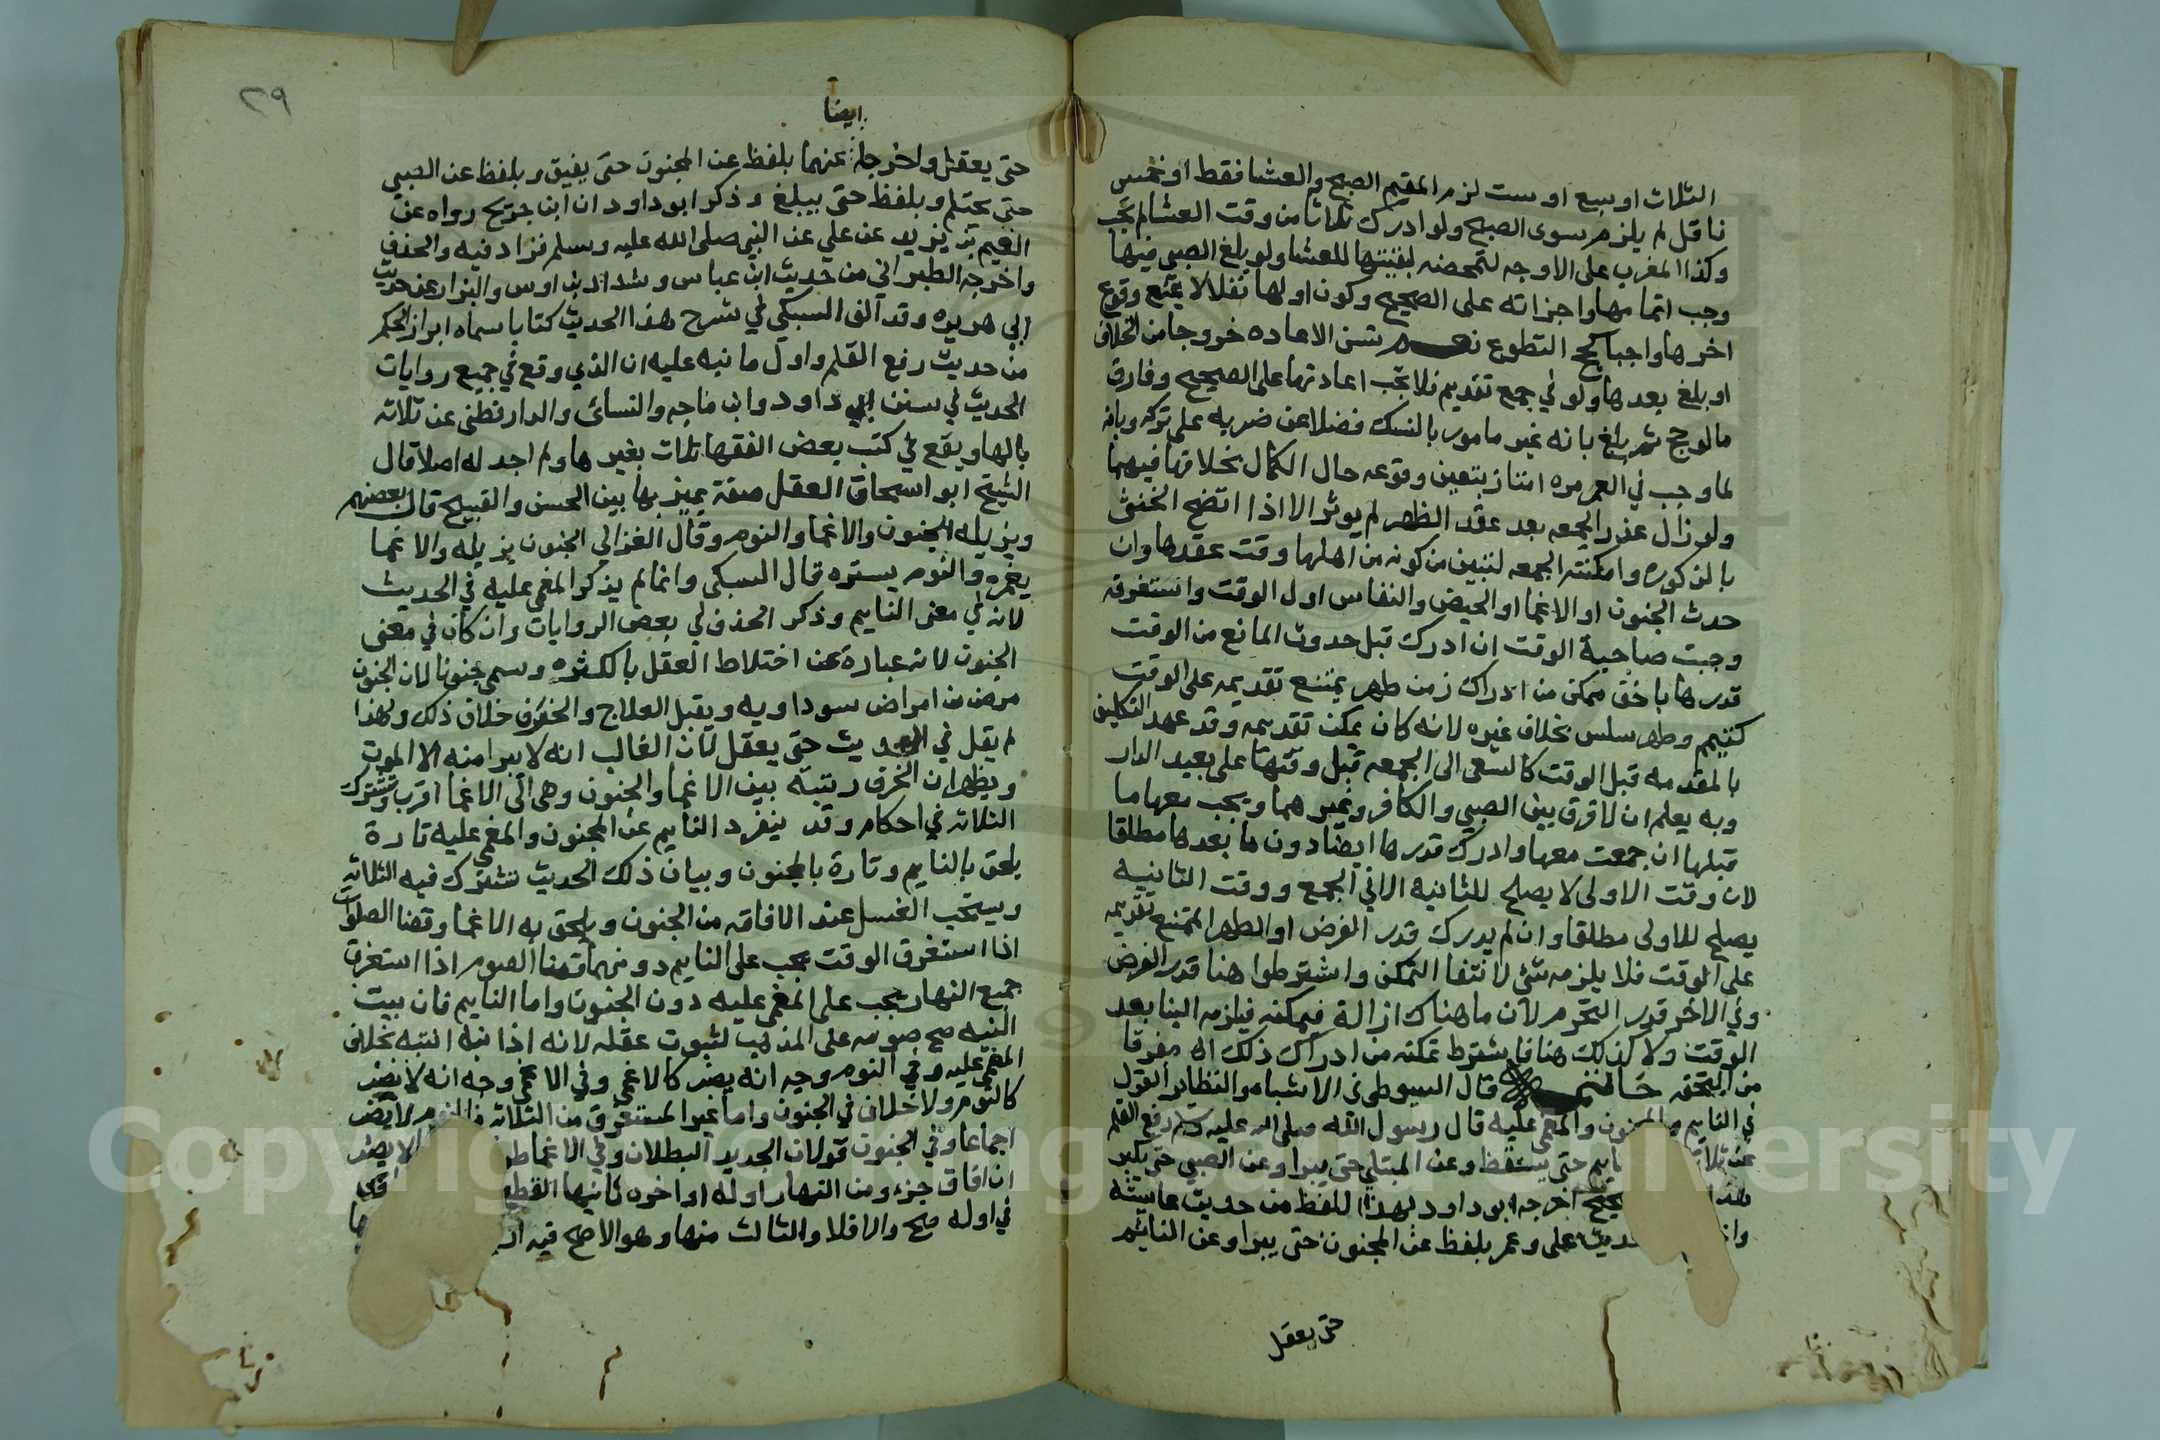 الثلاث او سبع او ست لزم المقيم الصبح والعشا فقط او خمس
ناقل لم يلزم سوى الصبح ولو ادرك ثلاثا من وقت العشا لم تجب
وكذا المغرب على الاوجه لتمحضه لفيتها للعشا ولو بلغ الصبي فيها
وجب اتمامها واجزاته على الصحيح وكون اولها نفلا لا يمنع وقوع
اخرها واجبا كحج التطوع نعم تسن الاعاده خروجا من الخلاف
او بلغ بعدها ولو في جمع تقديم فلا تجب اعادتها على الصحيح وفارق
مالو حج ثم بلغ بانه غير مامور بالنسك فضلا عن ضربه على تركه وبانه
لما وجب في العمر مره امتاز بتعين وقوعه حال الكمال بخلافها فيهما
ولو زال عذر الجمعه بعد عقد الظهر لم يوثر الا اذا اتضح الخنثى
بالذكوره وامكنته الجمعه لتبين من كونه من اهلها وقت عقدها وان
حدث الجنون او الاغما او الحيض والنفاس اول الوقت واستغرقه
وجبت صاحبة الوقت ان ادرك قبل حدوث المانع من الوقت
قدرها باخف ممكن من ادراك زمن طهر يمتنع تقديمه على الوقت
كتيمم وطهر سلس بخلاف غيره لانه كان يمكن تقديمه وقد عهد التكليف
بالمقدمه قبل الوقت كالسعي الى الجمعه قبل وقتها على بعيد الدار
وبه يعلم ان لا فرق بين الصبي والكافر وغيرهما ويجب معها ما
قبلها ان جمعت معها وادرك قدرها ايضا دون ما بعدها مطلقا
لان وقت الاولى لا يصلح للثانيه الا في الجمع ووقت الثانيه
يصلح للاولى مطلقا وان لم يدرك قدر الفرض او الطهر الممتنع تقديمه
على الوقت فلا يلزمه شي لانتفا التمكن واشترطوا هنا قدر الفرض
وفي الاخر قدر التحرم لان ما هناك ازالة فيمكنه فيلزمه البنا بعد
الوقت ولا كذلك هنا فاشترط تمكنه من ادراك ذلك اه مفرقا
من التحفه خاتمه قال السيوطي في الاشباه والنظاير القول
في النايم والمجنون والمغمى عليه قال رسول الله صلى الله عليه وسلم رفع القلم
عن ثلاثة النايم حتى يستيقظ وعن المبتلي حتى يبرا وعن الصبي حتى يكبر
هذا صحيح اخرجه ابو داود بهذا اللفظ من حديث عايشه
حديث على وعمر بلفظ عن المجنون حتى يبرا وعن النايم
حتى يعقل
٢٩
ايضا
حتى يعقل واخرجاه عنهما بلفظ عن المجنون حتى يفيق وبلفظ عن الصبي
حتى يحتلم وبلفظ حتى يبلغ وذكر ابو داود ان ابن جريج رواه عن
القسيم بن يزيد عن علي عن النبي صلى الله عليه وسلم فزاد فيه والخرف
واخرجه الطبراني من حديث ابن عباس وشداد بن اوس والبزار من حديث
ابي هريره وقد الف السبكي في شرح هذا الحديث كتابا سماه ابراز الحكم
من حديث رفع القلم واول ما نبه عليه ان الذي وقع في جميع روايات
الحديث في سنن ابي داود وابن ماجه والنسائ والدارقطنى عن ثلاثه
بالها ويقع في كتب بعض الفقها ثلاث بغيرها ولم اجد له اصلا قال
الشيخ ابو اسحاق العقل صفة يميز بها بين الحسن والقبيح قال بعضهم
ويزيله الجنون والاغما والنوم وقال الغزالي الجنون يزيله والاغما
يغمره والنوم يستره قال السبكى وانما لم يذكر المغمى عليه في الحديث
لانه في معنى النايم وذكر الخرف في بعض الروايات وان كان في معنى
الجنون لانه عبارة عن اختلاط العقل بالكبر وسمي جنونا لان الجنون
مرض من امراض سوداويه ويقبل العلاج والخرف خلاف ذلك ولهذا
لم يقل في الحديث حتى يعقل لان الغالب انه لا يبرا منه الا الموت
ويظهر ان الخرف رتبته بين الاغما والجنون وهي الى الاغما اقرب وتشترك
الثلاثه في احكام وقد ينفرد النايم عن المجنون والمغمى عليه تارة
يلحق بالنايم وتارة بالمجنون وبيان ذلك الحديث تشترك فيه الثلاثه
ويستحب الغسل عند الافاقه من الجنون ويلحق به الاغما وقضا الصلوات
اذا استغرق الوقت يجب على النايم دونهما وقضا الصوم اذا استغرق
جميع النهار يجب على المغمى عليه دون الجنون واما النايم فان بيت
النيه صح صومه على المذهب لثبوت عقله لانه اذا نبه انتبه بخلاف
المغمى عليه وفي النوم وجه انه يضر كالاغمى وفي الاغمى وجه انه لا يضر
كالنوم ولا خلاف في الجنون واما غير المستغرق من الثلاثه فالنوم لا يضر
اجماعا وفي الجنون قولان الجديد البطلان وفي الاغما لا يضر
ان افاق جزء ومن النهار اوله او اخره ثانيها القطع
في اوله صح والا فلا والثالث منها وهو الاصح فيه